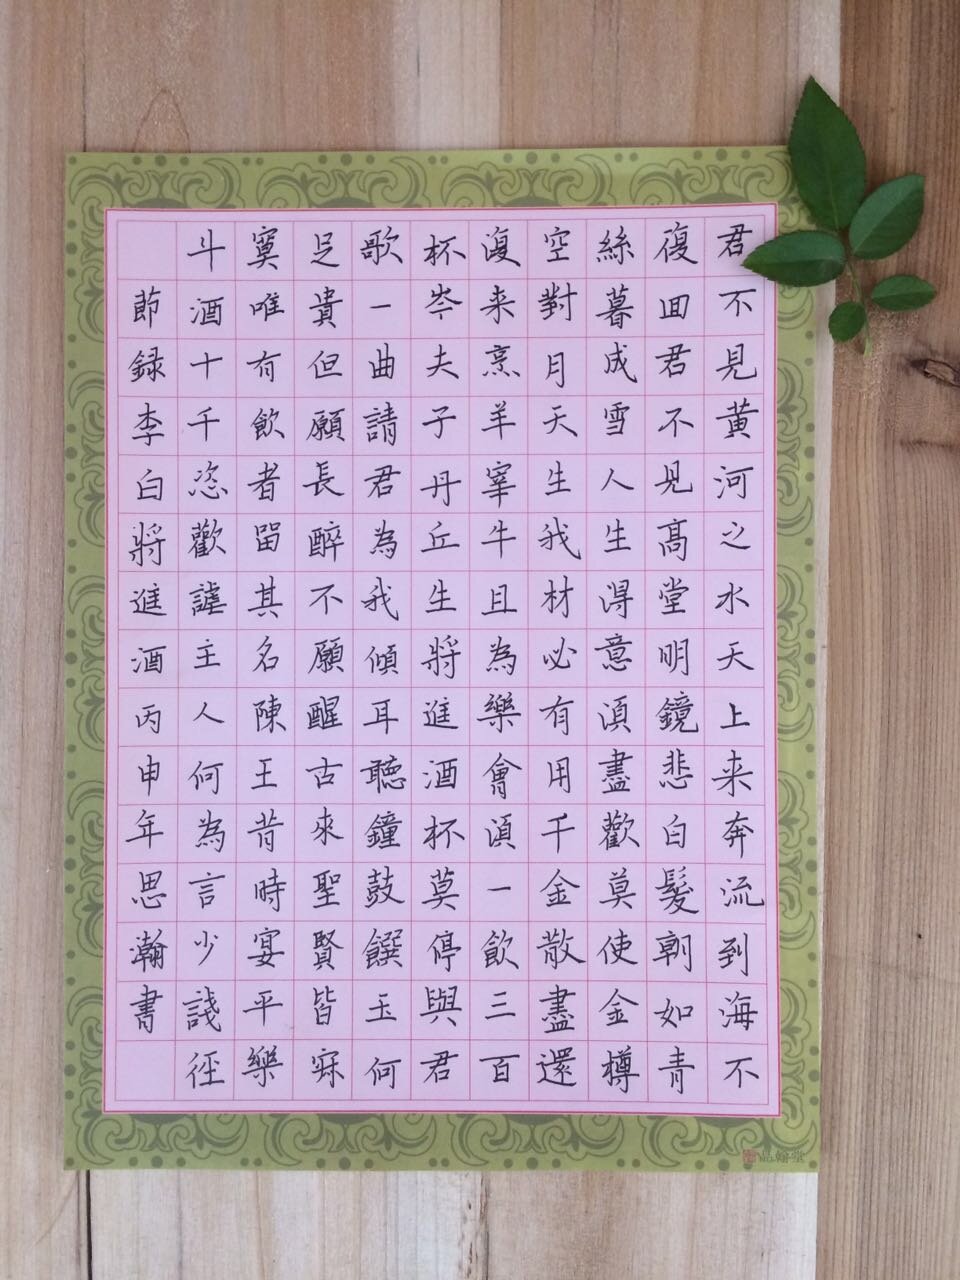 君不見黃河之水天上来奔流到海不
復囬君不見髙堂明鏡悲白髮朝如青
絲暮成雪人生得意須盡歡莫使金樽
空對月天生我材必有用千金散盡還
復来烹羊宰牛且為樂會須一飲三百
杯岑夫子丹丘生將進酒杯莫停與君
歌一曲請君為我傾耳聽鐘鼓饌玉何
足貴但願長醉不願醒古來聖賢皆寂
寞唯有飲者留其名陳王昔時宴平樂
斗酒十千恣歡謔主人何為言少錢徑
節録李白將進酒丙申年思瀚書
品翰堂